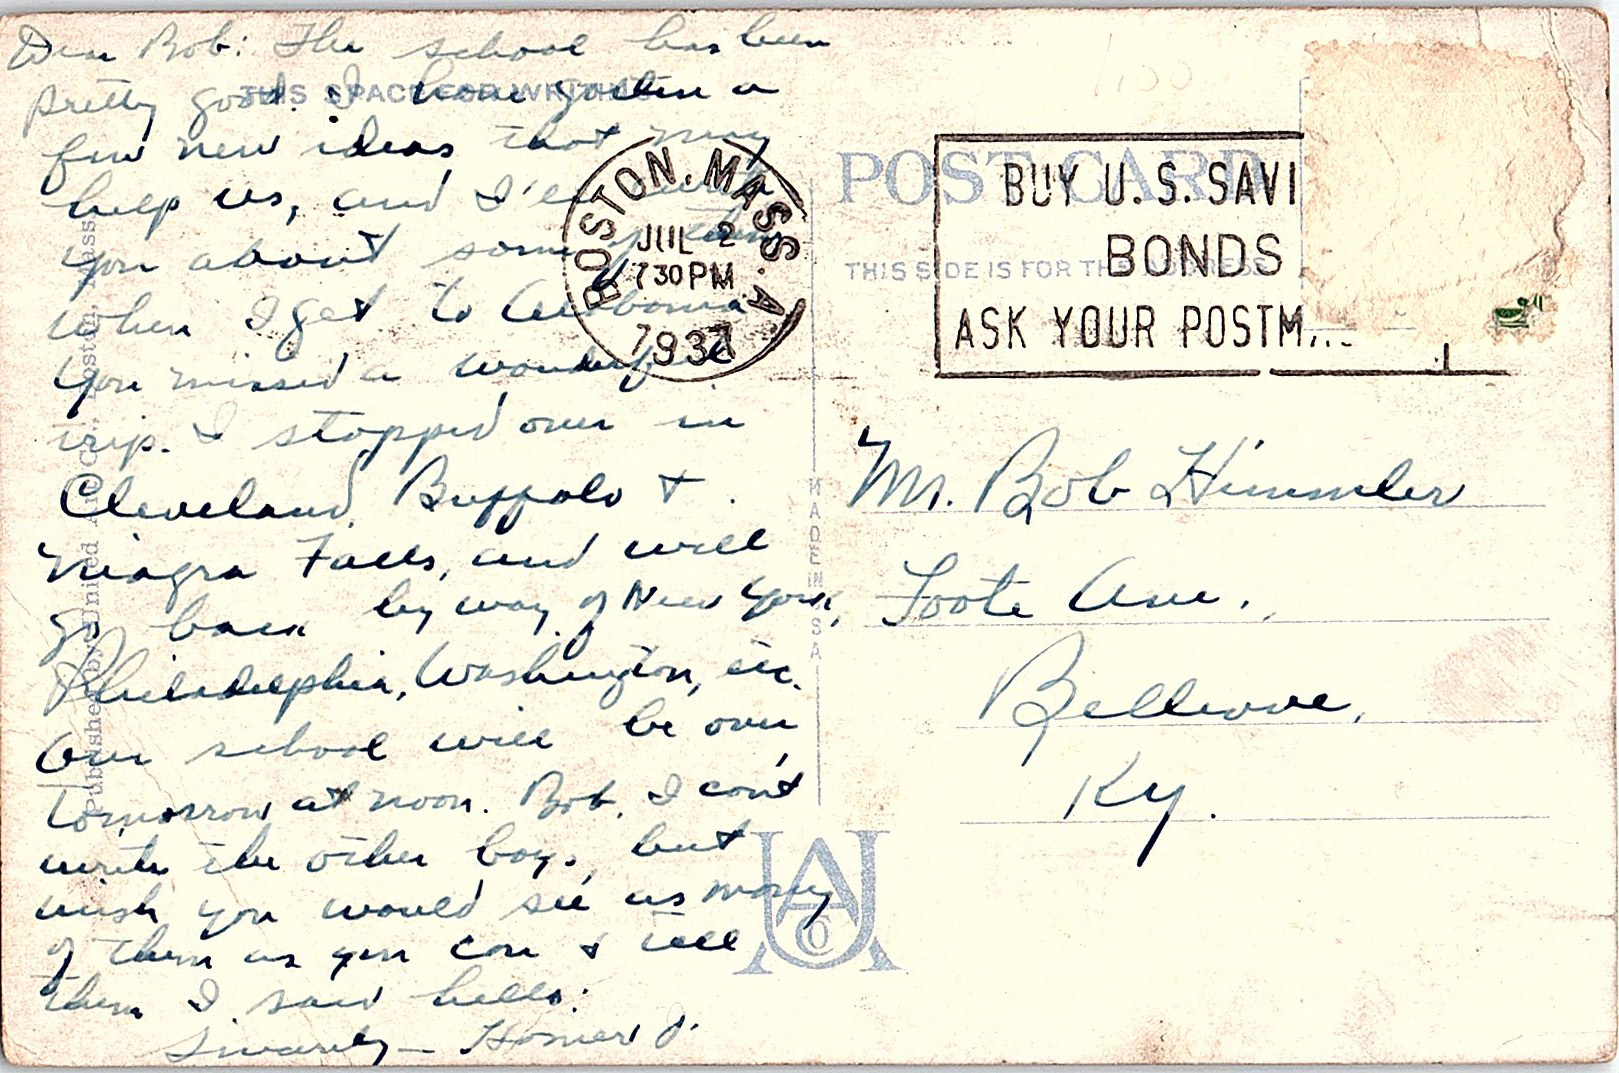 Dear Bob: The school has been
pretty good. I have gotten a
few new ideas that may
help us, and I'll
you about some of them
when I get to
You missed a wonderful
trip. I stopped over in
Cleveland, Buffalo &
Niagra Falls, and will
go back by way of New York,
Philadelphia, Washington, etc.
Our school will be over
tomorrow at noon. Bob, I can't
write the other boys, but
wish you would see as many
of them as you can & tell
them I said hello.
Sincerely — Homer J.
THIS SPACE FOR WRITING
Published by United Art Co., Boston, Mass.
BOSTON, MASS. A
JUL 2
730 PM
1937
POST CARD
THIS SIDE IS FOR THE ADDRESS
BUY U.S. SAVI
BONDS
ASK YOUR POSTM
MADE IN USA
Mr. Bob Himmler
Foote Ave.,
Bellevue,
Ky.
UA Co